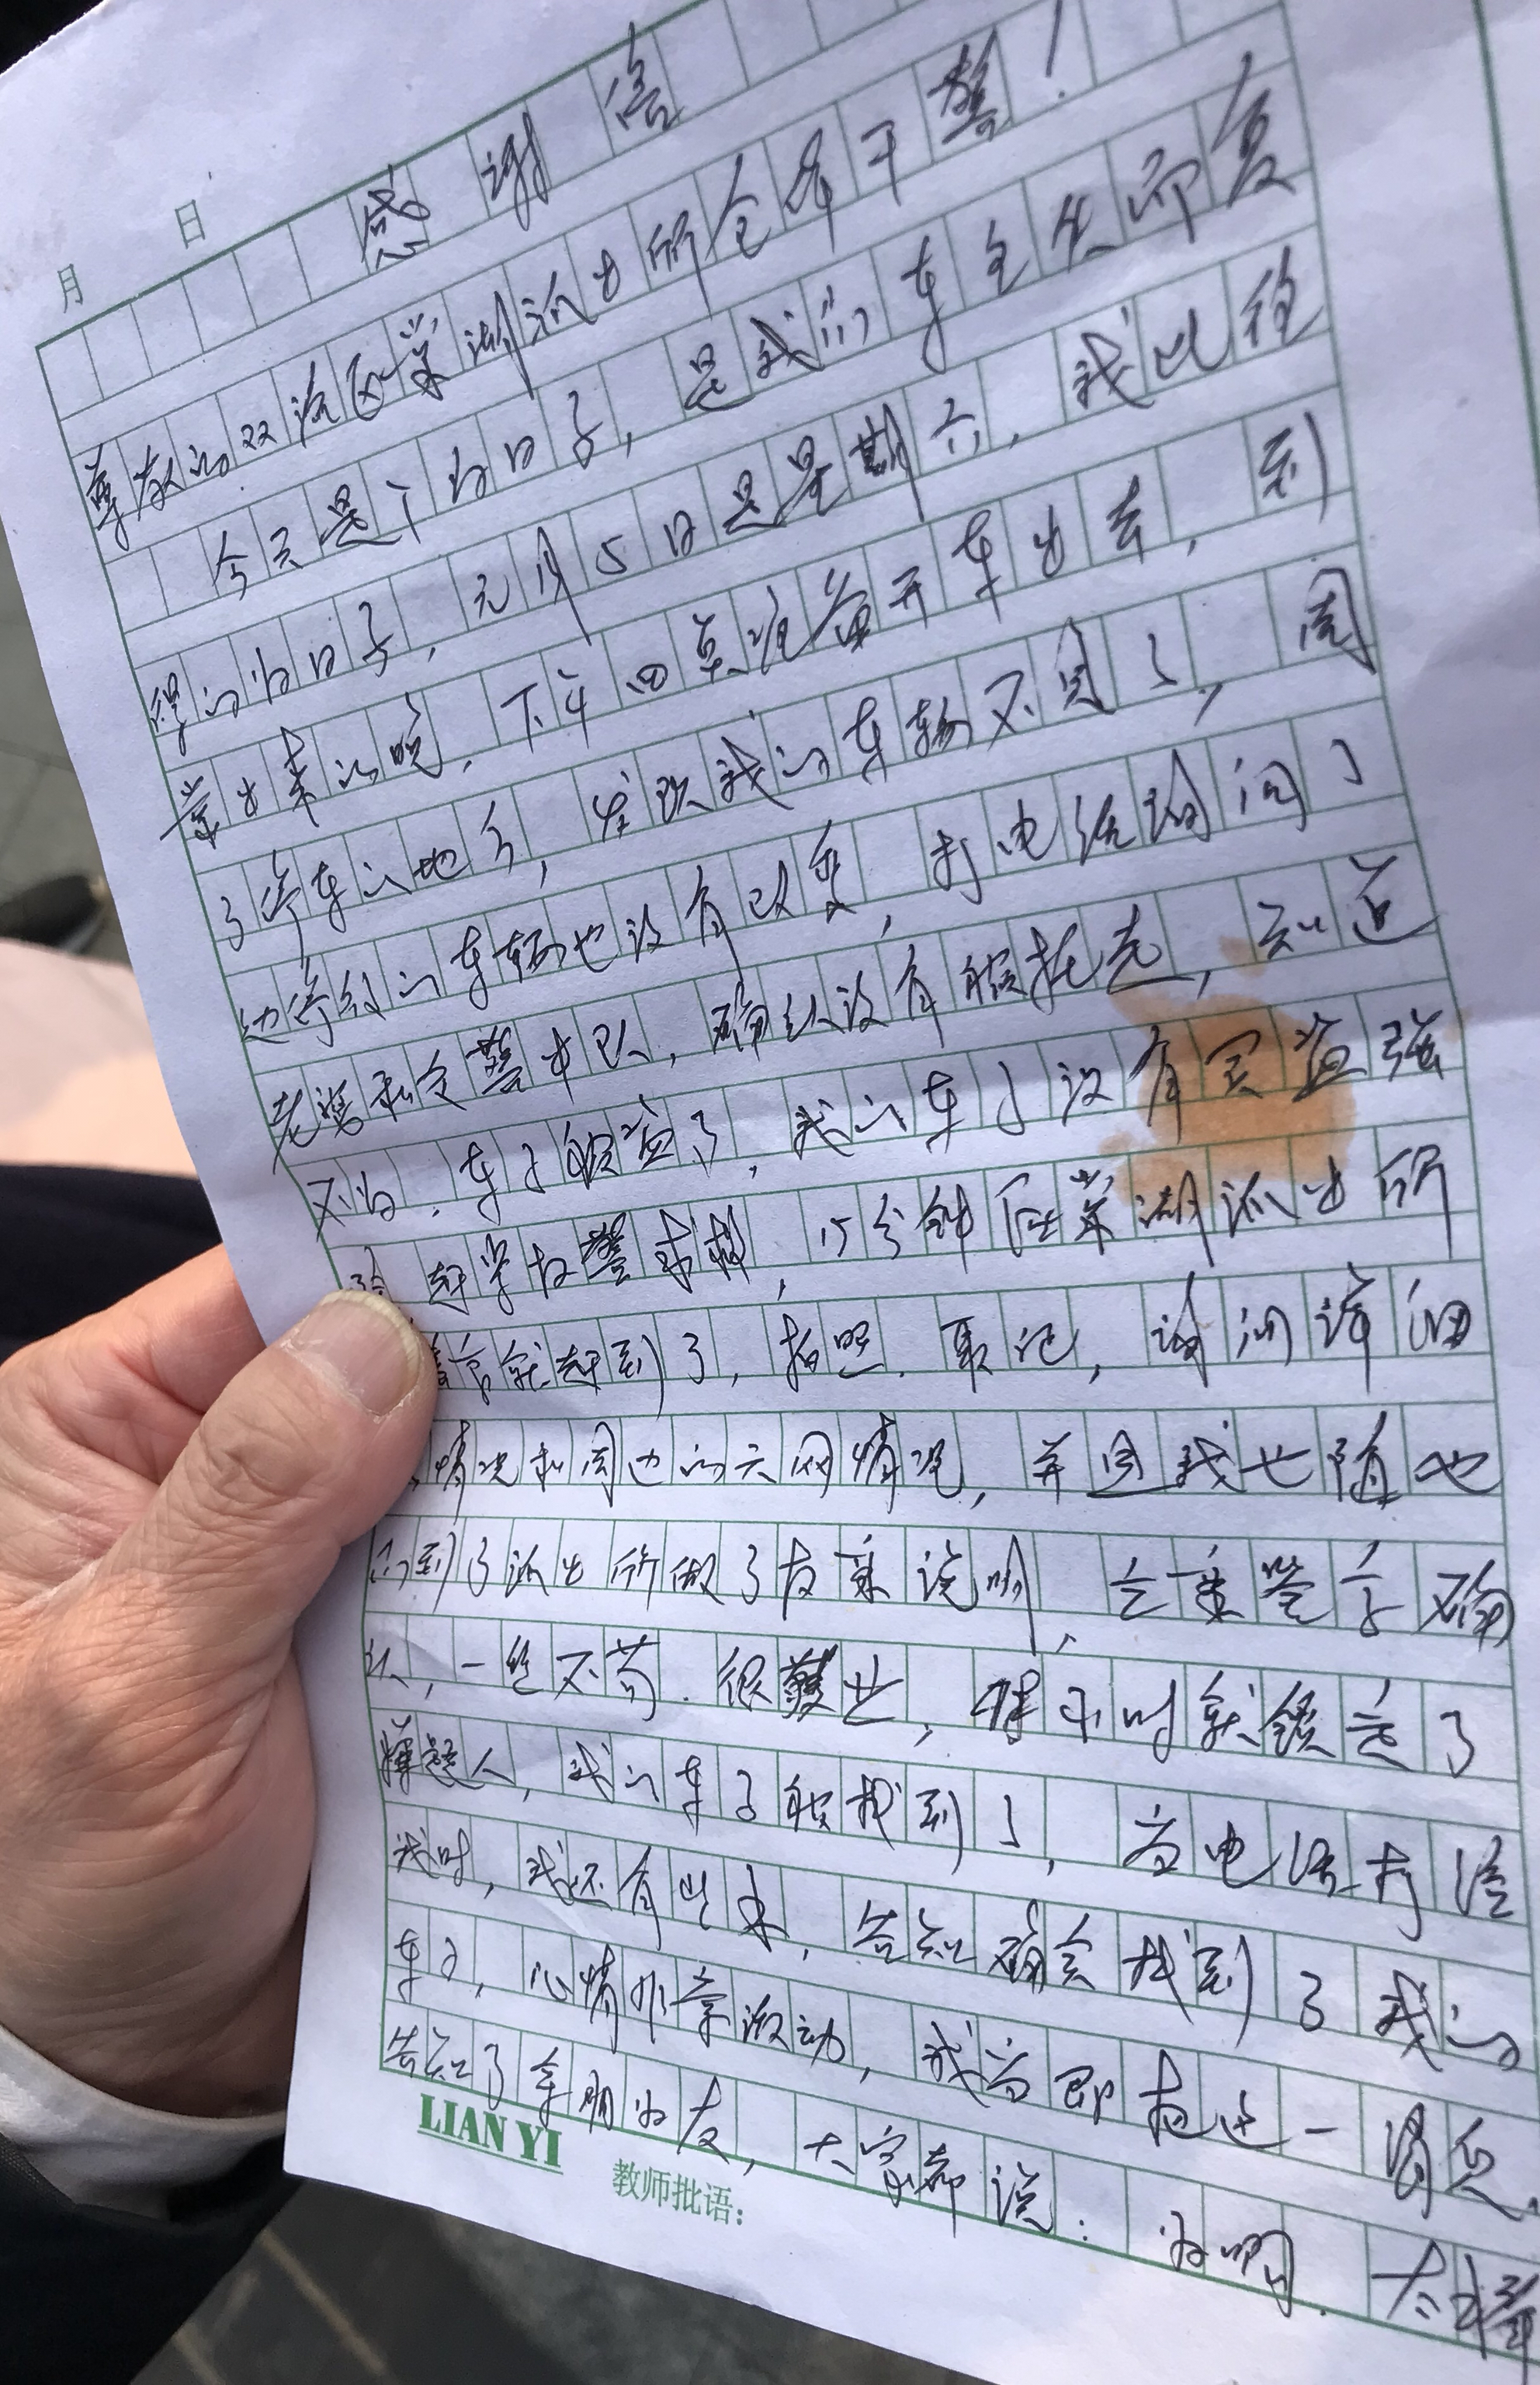 月 日
感谢信
尊敬的双流区棠湖派出所全体干警！
今天是个好日子，是我们车主失而复
得的好日子，元月5日是星期六，我比往
常出来的晚，下午四点准备开车出去，到
了停车的地方，发现我的车辆不见了，周
边停放的车辆也没有改变，打电话询问了
老婆和交警中队，确认没有被拖走，知道
不好，车子被盗了，我的车子没有买盗强
险 赶紧报警求救，15分钟后棠湖派出所
警官就赶到了，拍照、取记，询问详细
情况和周边的天网情况，并且我也随他
们到了派出所做了报案说明，立案签字确
认，一丝不苟、很敬业，小时就锁定了
嫌疑人，我的车子被找到了，当电话打给
我时，我还有些，告知确实找到了我的
车子，心情非常激动，我立即把这一消息
告知了亲朋好友，大家都说：好啊、太
LIAN YI
教师批语：